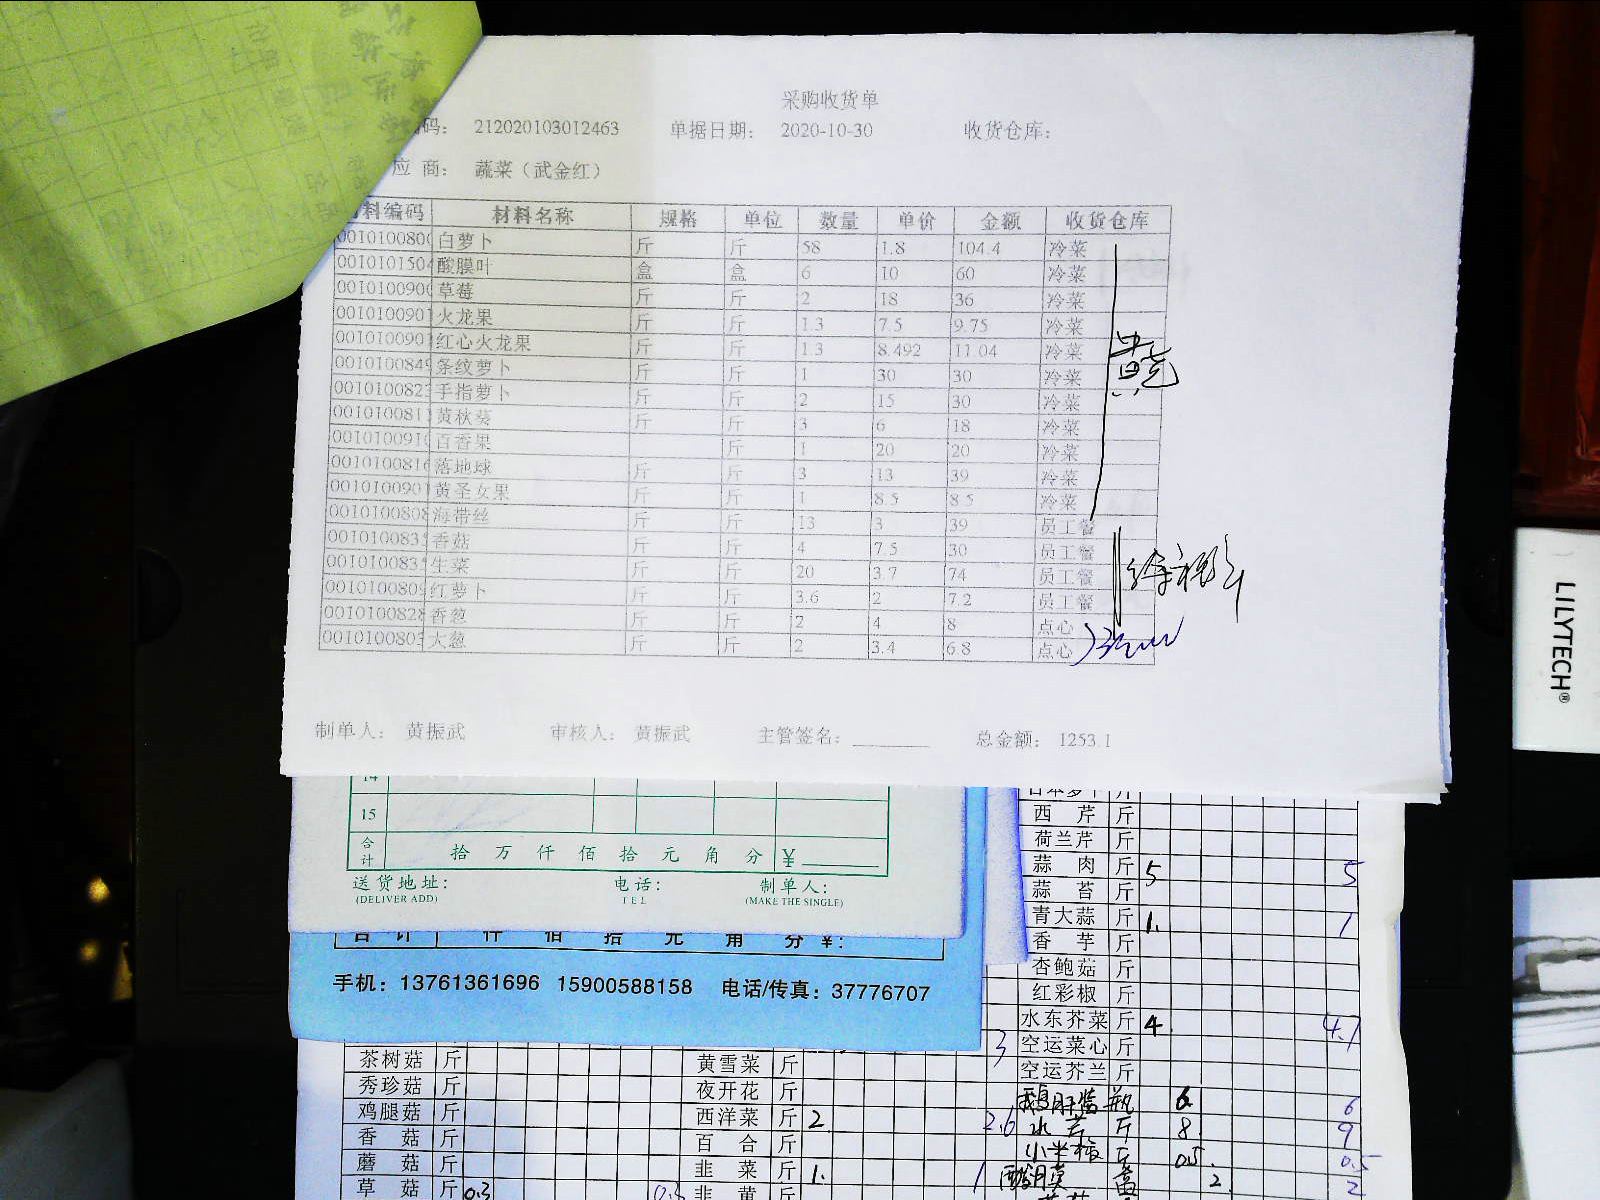 采购收货单
码： 212020103012463 单据日期： 2020-10-30 收货仓库：
应 商： 蔬菜（武金红）
料编码 材料名称 规格 单位 数量 单价 金额 收货仓库
001010080 白萝卜 斤 斤 58 1.8 104.4 冷菜
001010150 酸膜叶 盒 盒 6 10 60 冷菜
001010090 草莓 斤 斤 2 18 36 冷菜
001010090 火龙果 斤 斤 1.3 7.5 9.75 冷菜
001010090 红心火龙果 斤 斤 1.3 8.492 11.04 冷菜
001010084 条纹萝卜 斤 斤 1 30 30 冷菜
001010082 手指萝卜 斤 斤 2 15 30 冷菜
001010081 黄秋葵 斤 斤 3 6 18 冷菜
001010091 百香果 斤 1 20 20 冷菜
001010081 落地球 斤 斤 3 13 39 冷菜
001010090 黄圣女果 斤 斤 1 8.5 8.5 冷菜
001010080 海带丝 斤 斤 13 3 39 员工餐
001010083 香菇 斤 斤 4 7.5 30 员工餐
001010083 生菜 斤 斤 20 3.7 74 员工餐
001010080 红萝卜 斤 斤 3.6 2 7.2 员工餐
001010082 香葱 斤 斤 2 4 8 点心
001010080 大葱 斤 斤 2 3.4 6.8 点心
制单人： 黄振武 审核人： 黄振武 主管签名： 总金额： 1253.1
14
15
合计 拾 万 仟 佰 拾 元 角 分 ¥
送货地址： 电话： 制单人：
(DELIVER ADD) TEL (MAKE THE SINGLE)
合 计 仟 佰 拾 元 角 分 ¥:
手机：13761361696 15900588158 电话/传真：37776707
西 芹 斤
荷兰芹 斤
蒜 肉 斤 5 5
蒜 苔 斤
青大蒜 斤 1. 1
香 芋 斤
杏鲍菇 斤
红彩椒 斤
水东芥菜 斤 4. 4.1
3 空运菜心 斤
空运芥兰 斤
瓶 6 6
水芹 斤 8. 9
小米椒 斤 0.5. 0.5
盒 2. 2
茶树菇 斤 黄雪菜 斤
秀珍菇 斤 夜开花 斤
鸡腿菇 斤 西洋菜 斤 2. 2.6
香 菇 斤 百 合 斤
蘑 菇 斤 韭 菜 斤 1. 1
草 菇 斤 0.3 0.3 韭 黄 斤
LILYTECH®